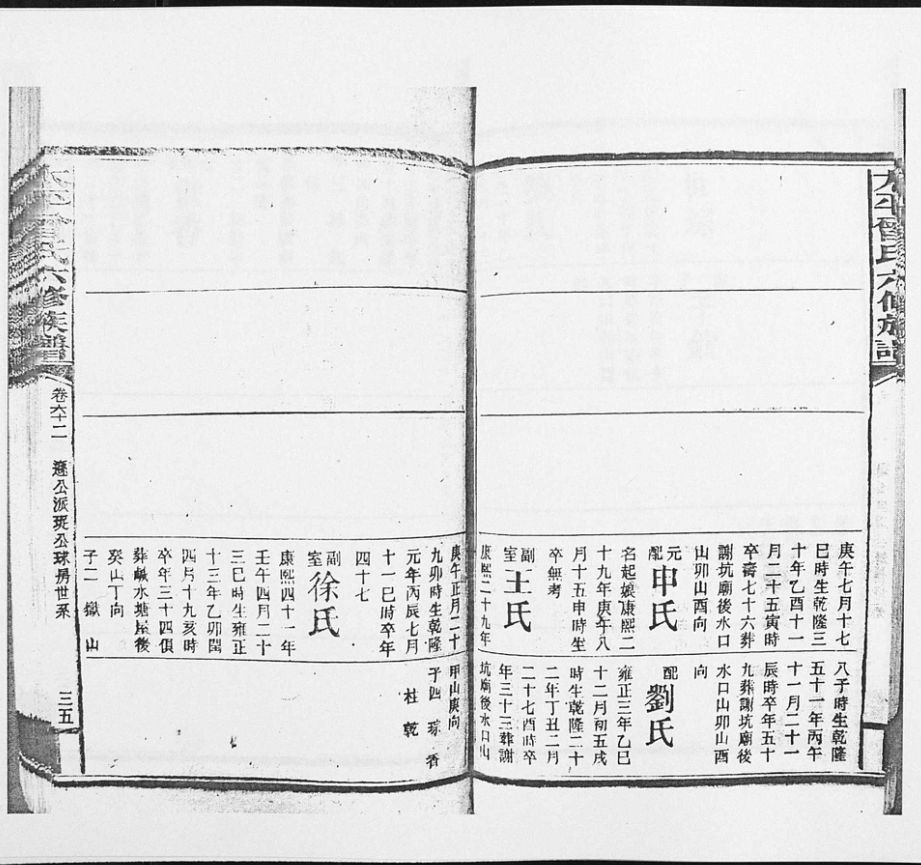 太平曾氏六修族譜
庚午七月十七
巳時生乾隆三
十年乙酉十一
月二十五寅時
卒壽七十六葬
謝坑廟後水口
山卯山酉向
元配申氏
名起娘康熙二
十九年庚午八
月十五申時生
卒無考
副室王氏
康熙二十九年
庚午正月二十
九卯時生乾隆
元年丙辰七月
十一巳時卒年
四十七
副室徐氏
康熙四十一年
壬午四月二十
三巳時生雍正
十三年乙卯閏
四月十九亥時
卒年三十四俱
葬鹹水塘屋後
癸山丁向
子二 嶽 山
八子時生乾隆
五十一年丙午
十一月二十一
辰時卒年五十
九葬謝坑廟後
水口山卯山酉
向
配劉氏
雍正三年乙巳
十二月初五戌
時生乾隆二十
二年丁丑二月
二十七酉時卒
年三十三葬謝
坑廟後水口山
甲山庚向
子四 琢 香
柱 乾
太平曾氏六修族譜
卷六十二
三五